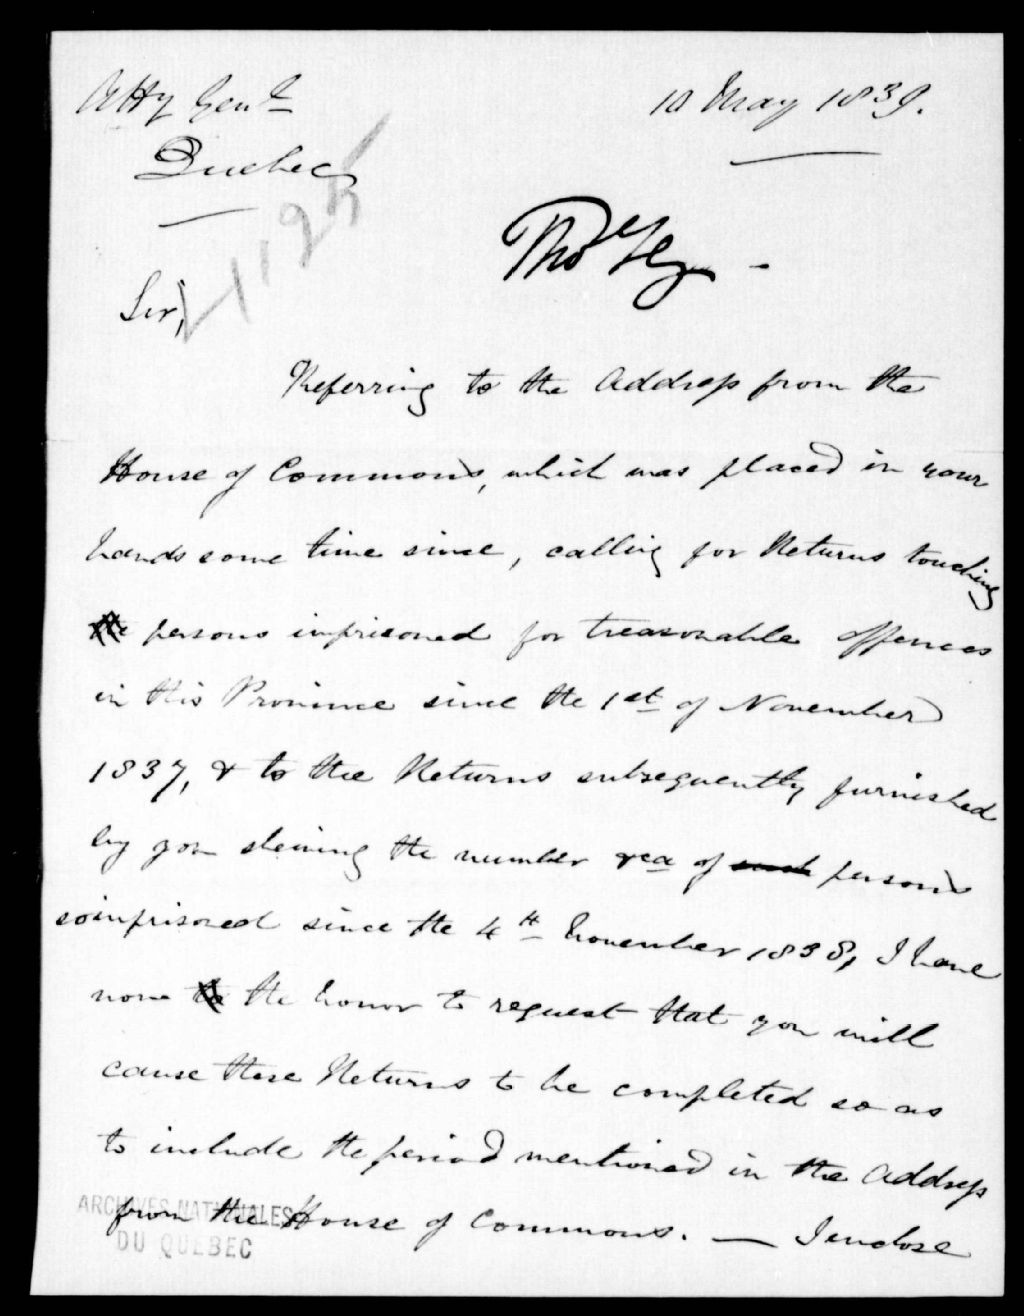 Atty Genl
10 May 1839.
Quebec
1195
Sir,
Referring to the Address from the
House of Commons, which was placed in your
hands some time since, calling for Returns touching
persons imprisoned for treasonable offences
in this Province since the 1st of November
1837, & to the Returns subsequently furnished
by you shewing the number &ca of such persons
so imprisoned since the 4th November 1838, I have
now the honor to request that you will
cause these Returns to be completed so as
to include the period mentioned in the Address
from the House of Commons. — I enclose
ARCHIVES NATIONALES
DU QUÉBEC